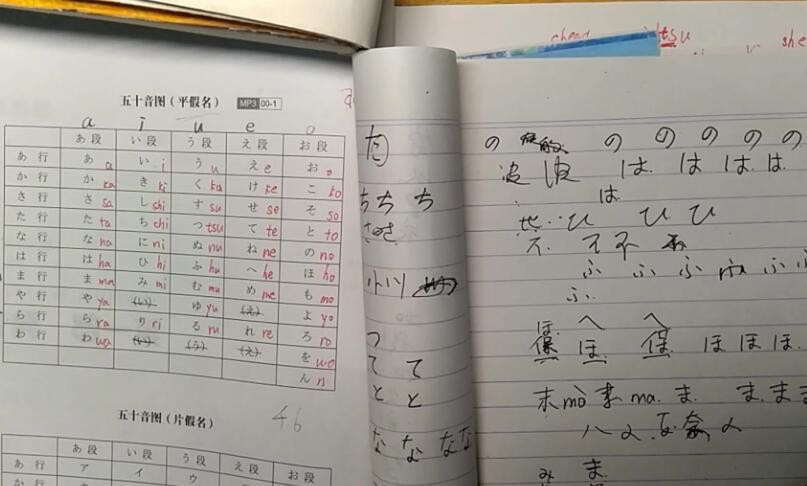 五十音图(平假名) MP3 00-1
a i u e o
あ段 い段 う段 え段 お段
あ行 あ a い i う u え e お o
か行 か ka き ki く ku け ke こ ko
さ行 さ sa し shi す su せ se そ so
た行 た ta ち chi つ tsu て te と to
な行 な na に ni ぬ nu ね ne の no
は行 は ha ひ hi ふ hu へ he ほ ho
ま行 ま ma み mi む mu め me も mo
や行 や ya (い) ゆ yu (え) よ yo
ら行 ら ra り ri る ru れ re ろ ro
わ行 わ wa (い) (う) (え) を wo
ん n
46
五十音图(片假名)
あ段 い段 う段 え段 お段
あ行 ア イ ウ
か行
た
ち ち ち
小川
つ
て て
と と
な な な な
tsu she
の の の の の の
波 波 は は は は
は
ひ ひ ひ
不
ふ ふ ふ ふ ふ
ふ
ほ へ へ
保 ほ 保 ほ ほ ほ
末 mò ma. ま ま ま ま
み ま